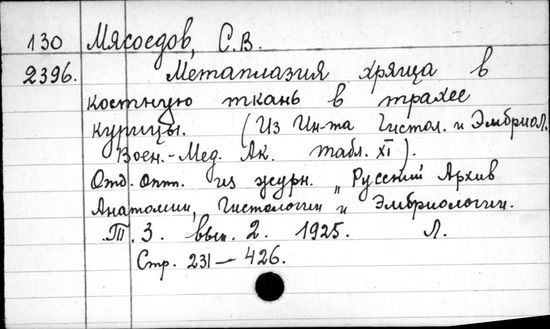 130 Мясоедов, С.В.
2396. Метаплазия хряща в
костную ткань в трахее
курицы. (Из Ин-та Гистол. и Эмбриол.
Воен.-Мед. Ак. табл. XI).
Отд. отт. из журн. „Русский Архив
Анатомии, Гистологии и Эмбриологии.
Т. 3. вып. 2. 1925. Л.
Стр. 231-426.